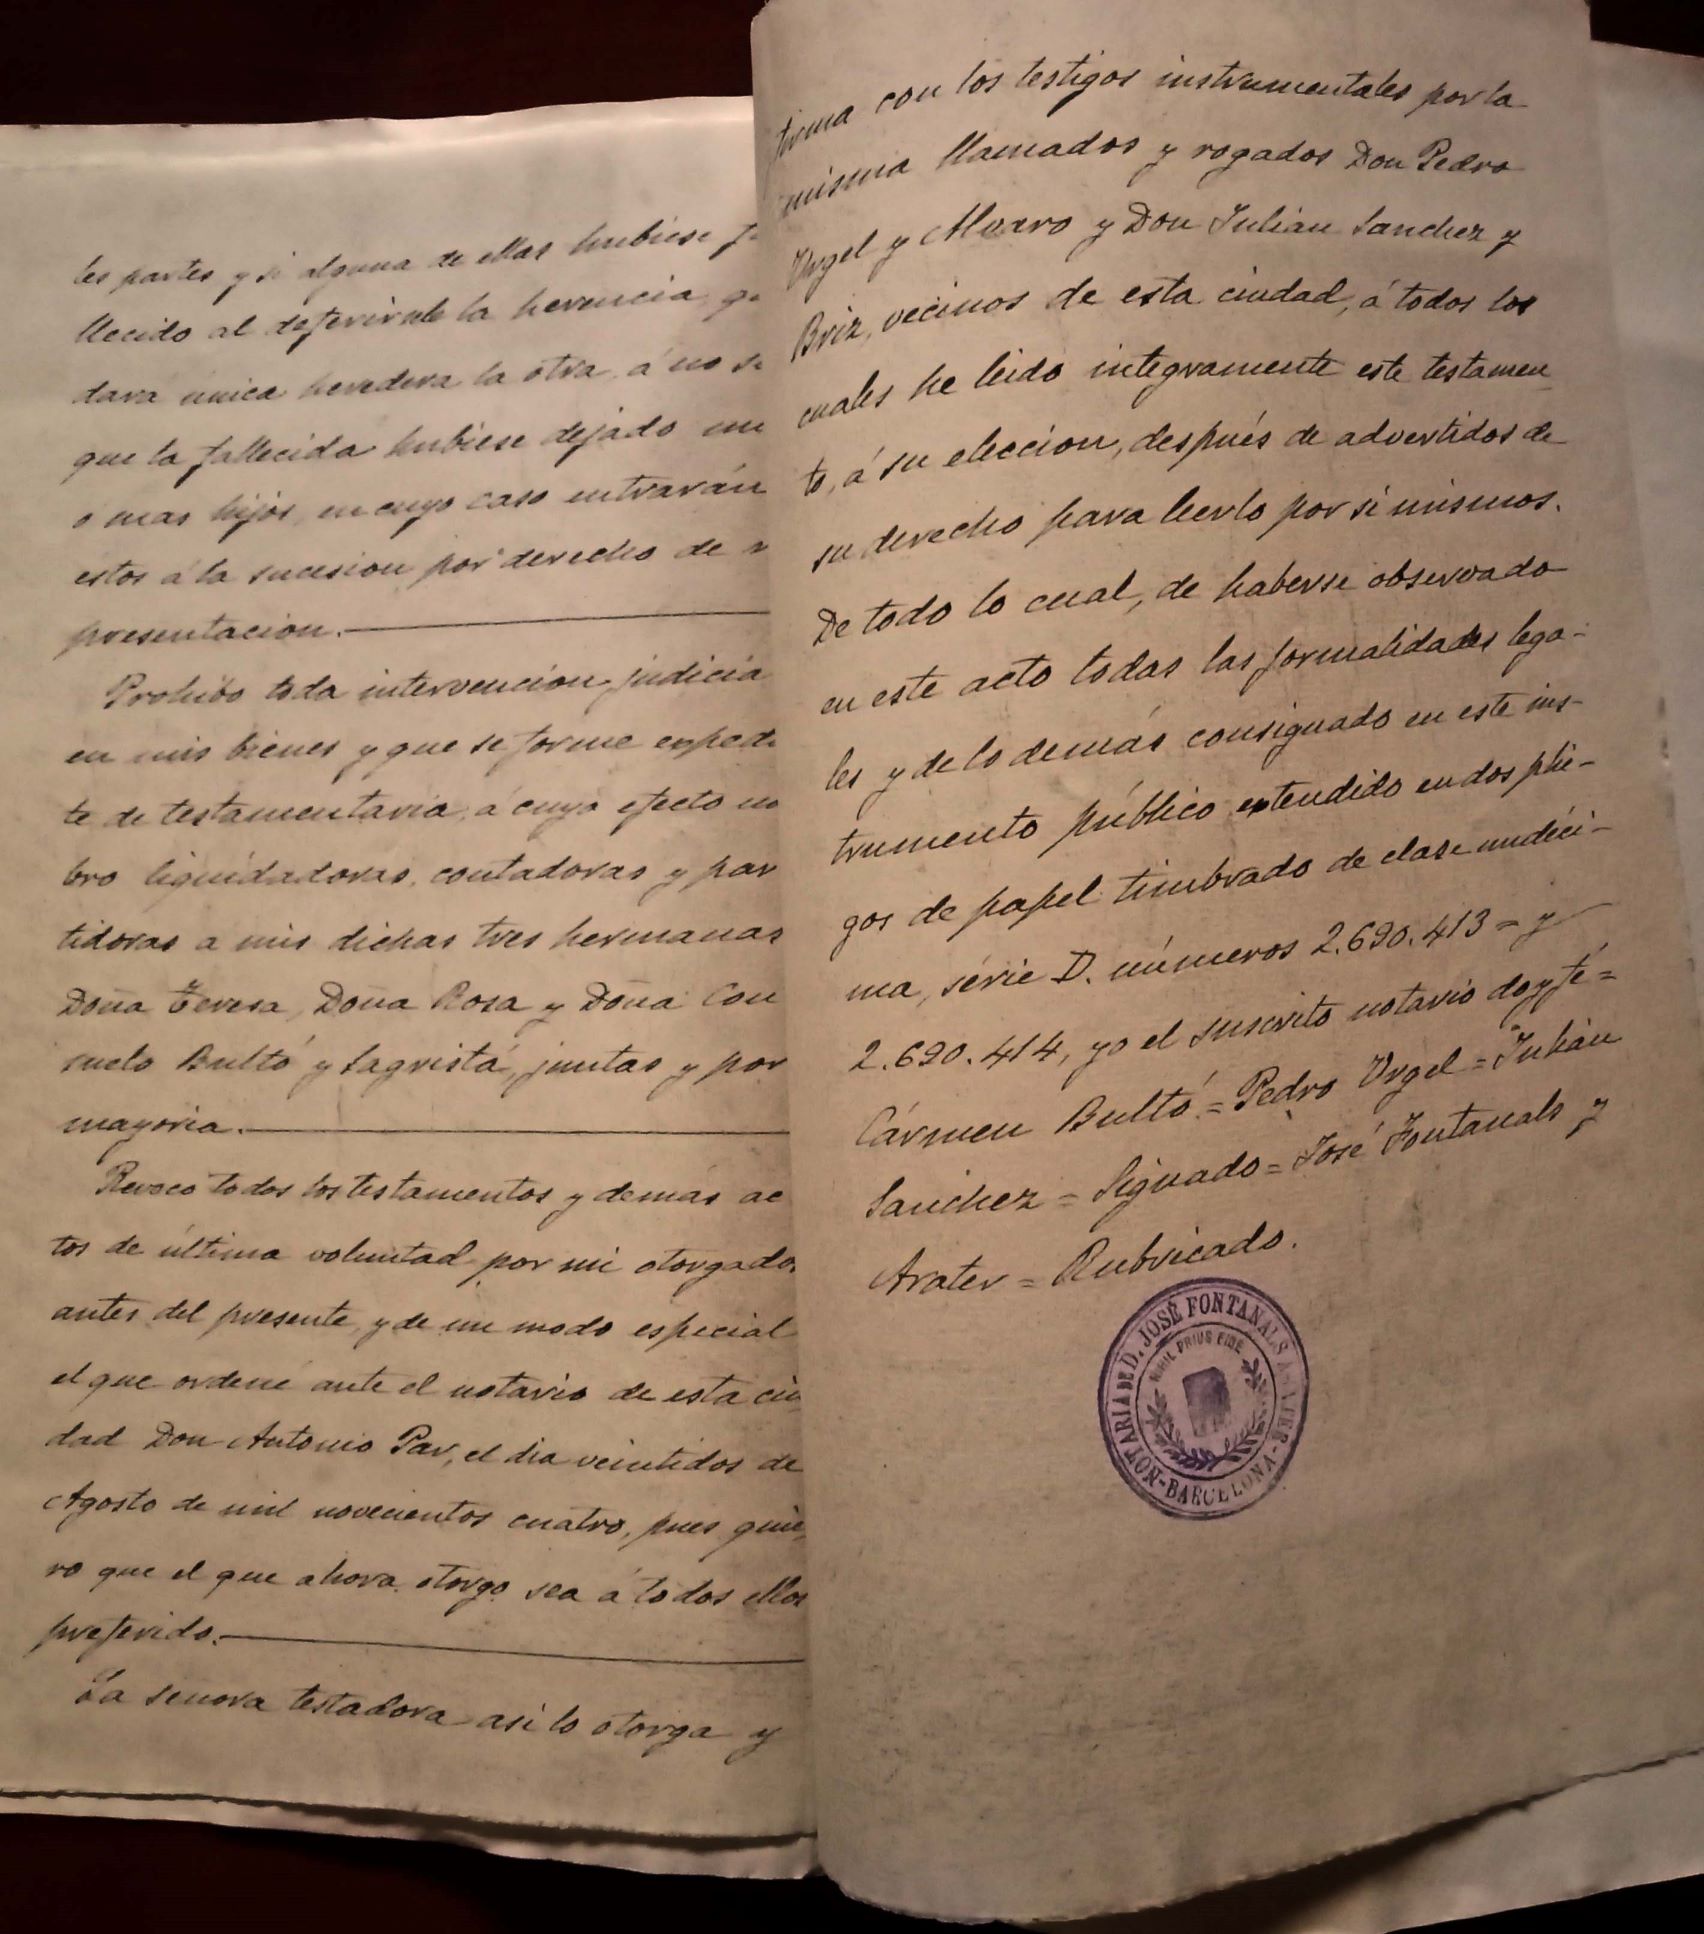 les partes y si alguna de ellas hubiese fa
llecido al deferirsele la herencia, que
dará única heredera la otra, á no se
que la fallecida hubiese dejado un
ó mas hijos, en cuyo caso entrarán
estos á la sucesion por derecho de r
presentacion.
Prohibo toda intervencion judicia
en mis bienes y que se forme expedi
te de testamentaria, á cuyo efecto no
bro liquidadoras, contadoras y par
tidoras a mis dichas tres hermanas
Doña Teresa, Doña Rosa y Doña Con
suelo Bultó y Sagristá, juntas y por
mayoria.
Revoco todos los testamentos y demás ac
tos de última voluntad por mi otorgados
antes del presente, y de un modo especial
el que ordené ante el notario de esta ciu
dad Don Antonio Par, el dia veintidos de
Agosto de mil novecientos cuatro, pues quie
ro que el que ahora otorgo sea á todos ellos
preferido.
La señora testadora asi lo otorga y
firma con los testigos instrumentales por la
misma llamados y rogados Don Pedro
Urgel y Alvaro y Don Julián Sanchez y
Briz, vecinos de esta ciudad, á todos los
cuales he leido integramente este testamen
to, á su eleccion, después de advertidos de
su derecho para leerlo por sí mismos.
De todo lo cual, de haberse observado
en este acto todas las formalidades lega-
les y de lo demás consignado en este ins-
trumento público extendido en dos plie-
gos de papel timbrado de clase undéci-
ma, série D. números 2.690.413 = y
2.690.414, yo el suscrito notario doy fé =
Cármen Bultó = Pedro Urgel = Julián
Sanchez = Signado = José Fontanals y
Arater = Rubricado.
NOTARIA DE D. JOSÉ FONTANALS ARATER - BARCELONA -
NIHIL PRIUS FIDE